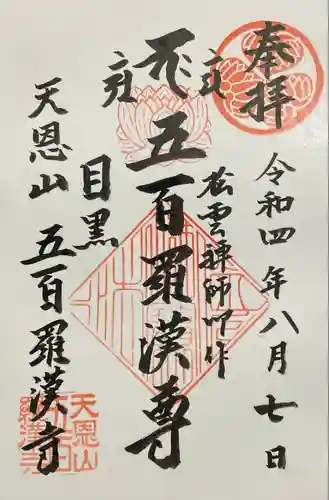 奉拝
令和四年八月七日
五百羅漢尊
松雲禅師叩作
目黒
天恩山 五百羅漢寺
天恩山五百羅漢寺